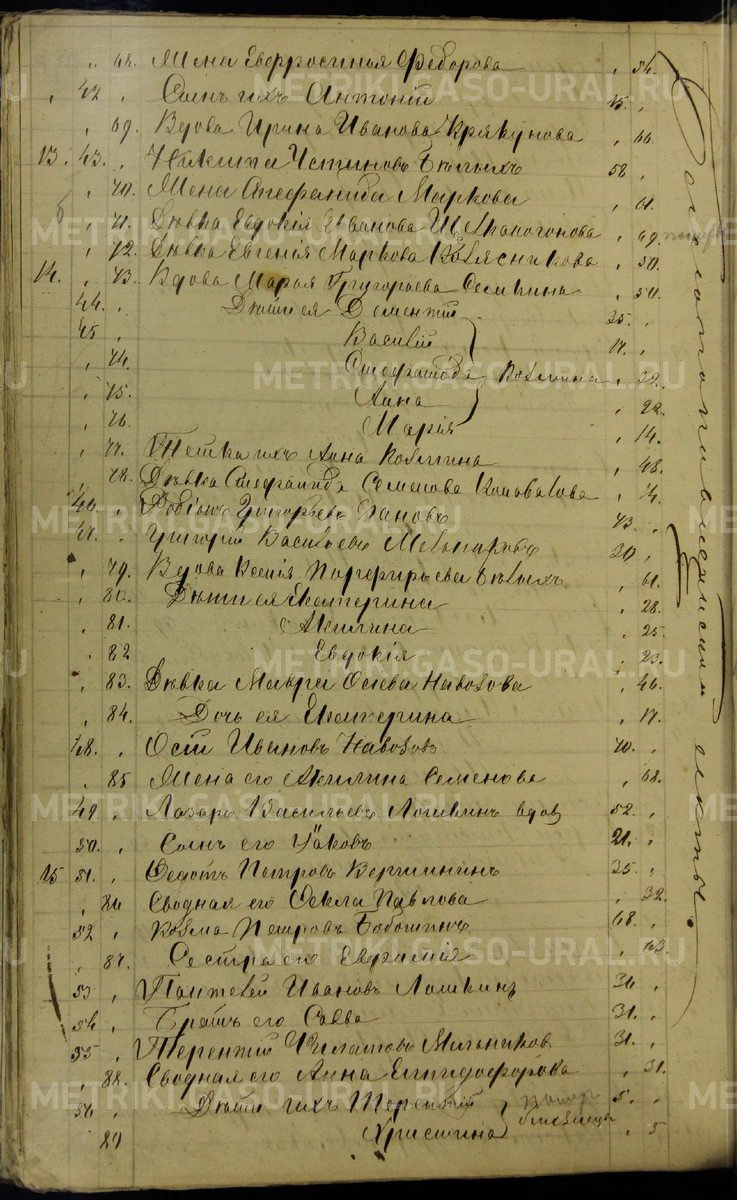 68. Жена Евфросиния Федорова 54.
42 Сынъ ихъ Антоній 15.
69. Вдова Ирина Иванова Крякунова 66
13. 43. Никита Устиновъ Бѣлыхъ 58
70. Жена Стефанида Маркова 61.
71. Дѣвка Евдокія Иванова Щелканогонова 69
72. Дѣвка Евгенія Маркова Колясникова 50.
14. 73. Вдова Марья Григорьева Семкина 50.
44. Дѣти ея Дементій 25.
45 Василій 17.
74. Стефанида Козмина 32.
75. Анна 22.
76. Марія 14.
77. Тетка ихъ Анна Козмина 48.
78. Дѣвка Стефанида Семенова Коновалова 74.
46. Родіонъ Григорьевъ Пановъ 43
47. Григорій Васильевъ Мельниковъ 20
79. Вдова Ксенія Порфирьева Бѣлыхъ 61.
80. Дѣти ея Екатерина 28.
81. Акилина 25.
82 Евдокія 23.
83. Дѣвка Мавра Осиева Навозова 46.
84. Дочь ея Екатерина 17.
48. Осій Ивановъ Навозовъ 70.
85 Жена его Акилина Семенова 68.
49 Лазарь Васильевъ Лошкинъ вдов 52.
50. Сынъ его Яковъ 21.
15 51. Федотъ Петровъ Вершининъ 35.
86 Сводная его Фекла Павлова 32.
52 Козма Петровъ Бабошинъ 68.
87. Сестра его Евфимія 63.
53 Пантелей Ивановъ Лошкинъ 36.
54 Братъ его Савва 31.
55 Терентій Филатовъ Мельниковъ 31.
88. Сводная его Анна Елпидофорова 31.
56. Дѣти ихъ Терентій 5.
89 Христина 5
METRIKI.GASO-URAL.RU